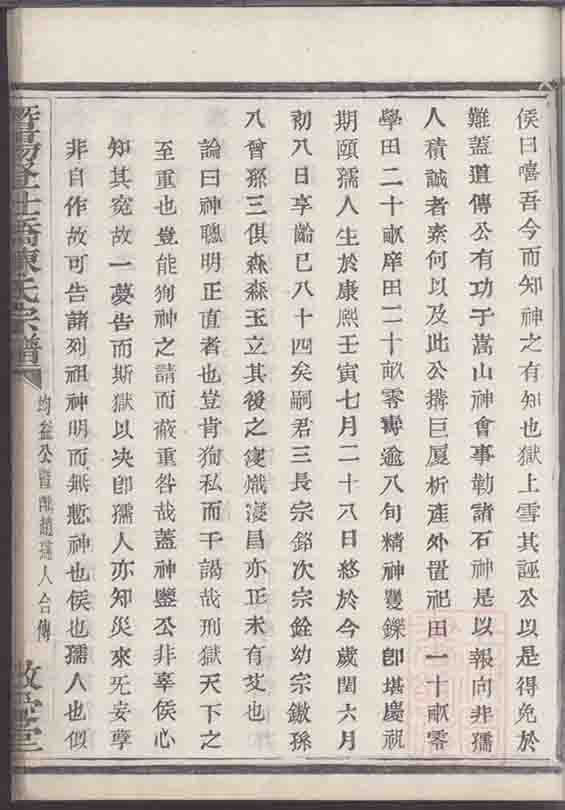 侯曰嘻吾今而知神之有知也獄上雪其誣公以是得免於
難蓋道傳公有功于嵩山神會事勒諸石神是以報向非孺
人積誠者素何以及此公搆巨厦析產外置祀田一十畝零
學田二十畝庠田二十畝零壽逾八旬精神矍鑠卽堪慶祝
期頤孺人生於康熙壬寅七月二十八日終於今歲閏六月
初八日享齡已八十四矣嗣君三長宗銘次宗銓幼宗鏾孫
八曾孫三俱森森玉立其後之寖熾寖昌亦正未有艾也
論曰神聰明正直者也豈肯狥私而干謁哉刑獄天下之
至重也豈能狥神之請而蔽重咎哉蓋神鑒公非辜侯心
知其寃故一夢告而斯獄以决卽孺人亦知災來无妄孽
非自作故可告諸列祖神明而無慙神也侯也孺人也似
暨陽开仕喬陳氏宗譜
均益公曁配趙孺人合傳
敦堂